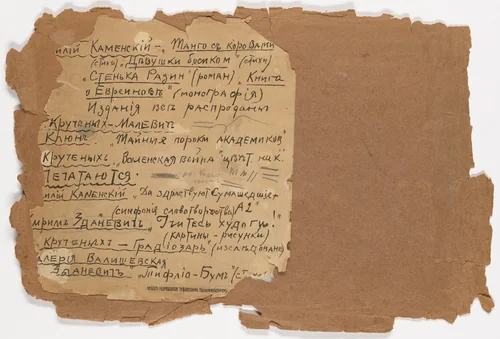 илій Каменскій – „Танго съ коровами
(стихи) „Дѣвушки босиком" (стихи)
„Стенька Разин" (роман) „Книга
о Евреиновѣ" (монографія)
Изданія всѣ распроданы
Крученых – Малевич
Клюнъ „Тайныя пороки академиков"
Крученыхъ „Вселенская война" цвѣт. нак.
Печатаются.
илій Каменскій „Да здраствуют сумашедшіе"
(симфонія словотворчества)
Зданевичъ „Учитесь худоги"
(картины – рисунки)
Крученыхъ –
Валерія Валишевская
Зданевичъ „Тифліс – Бумъ"